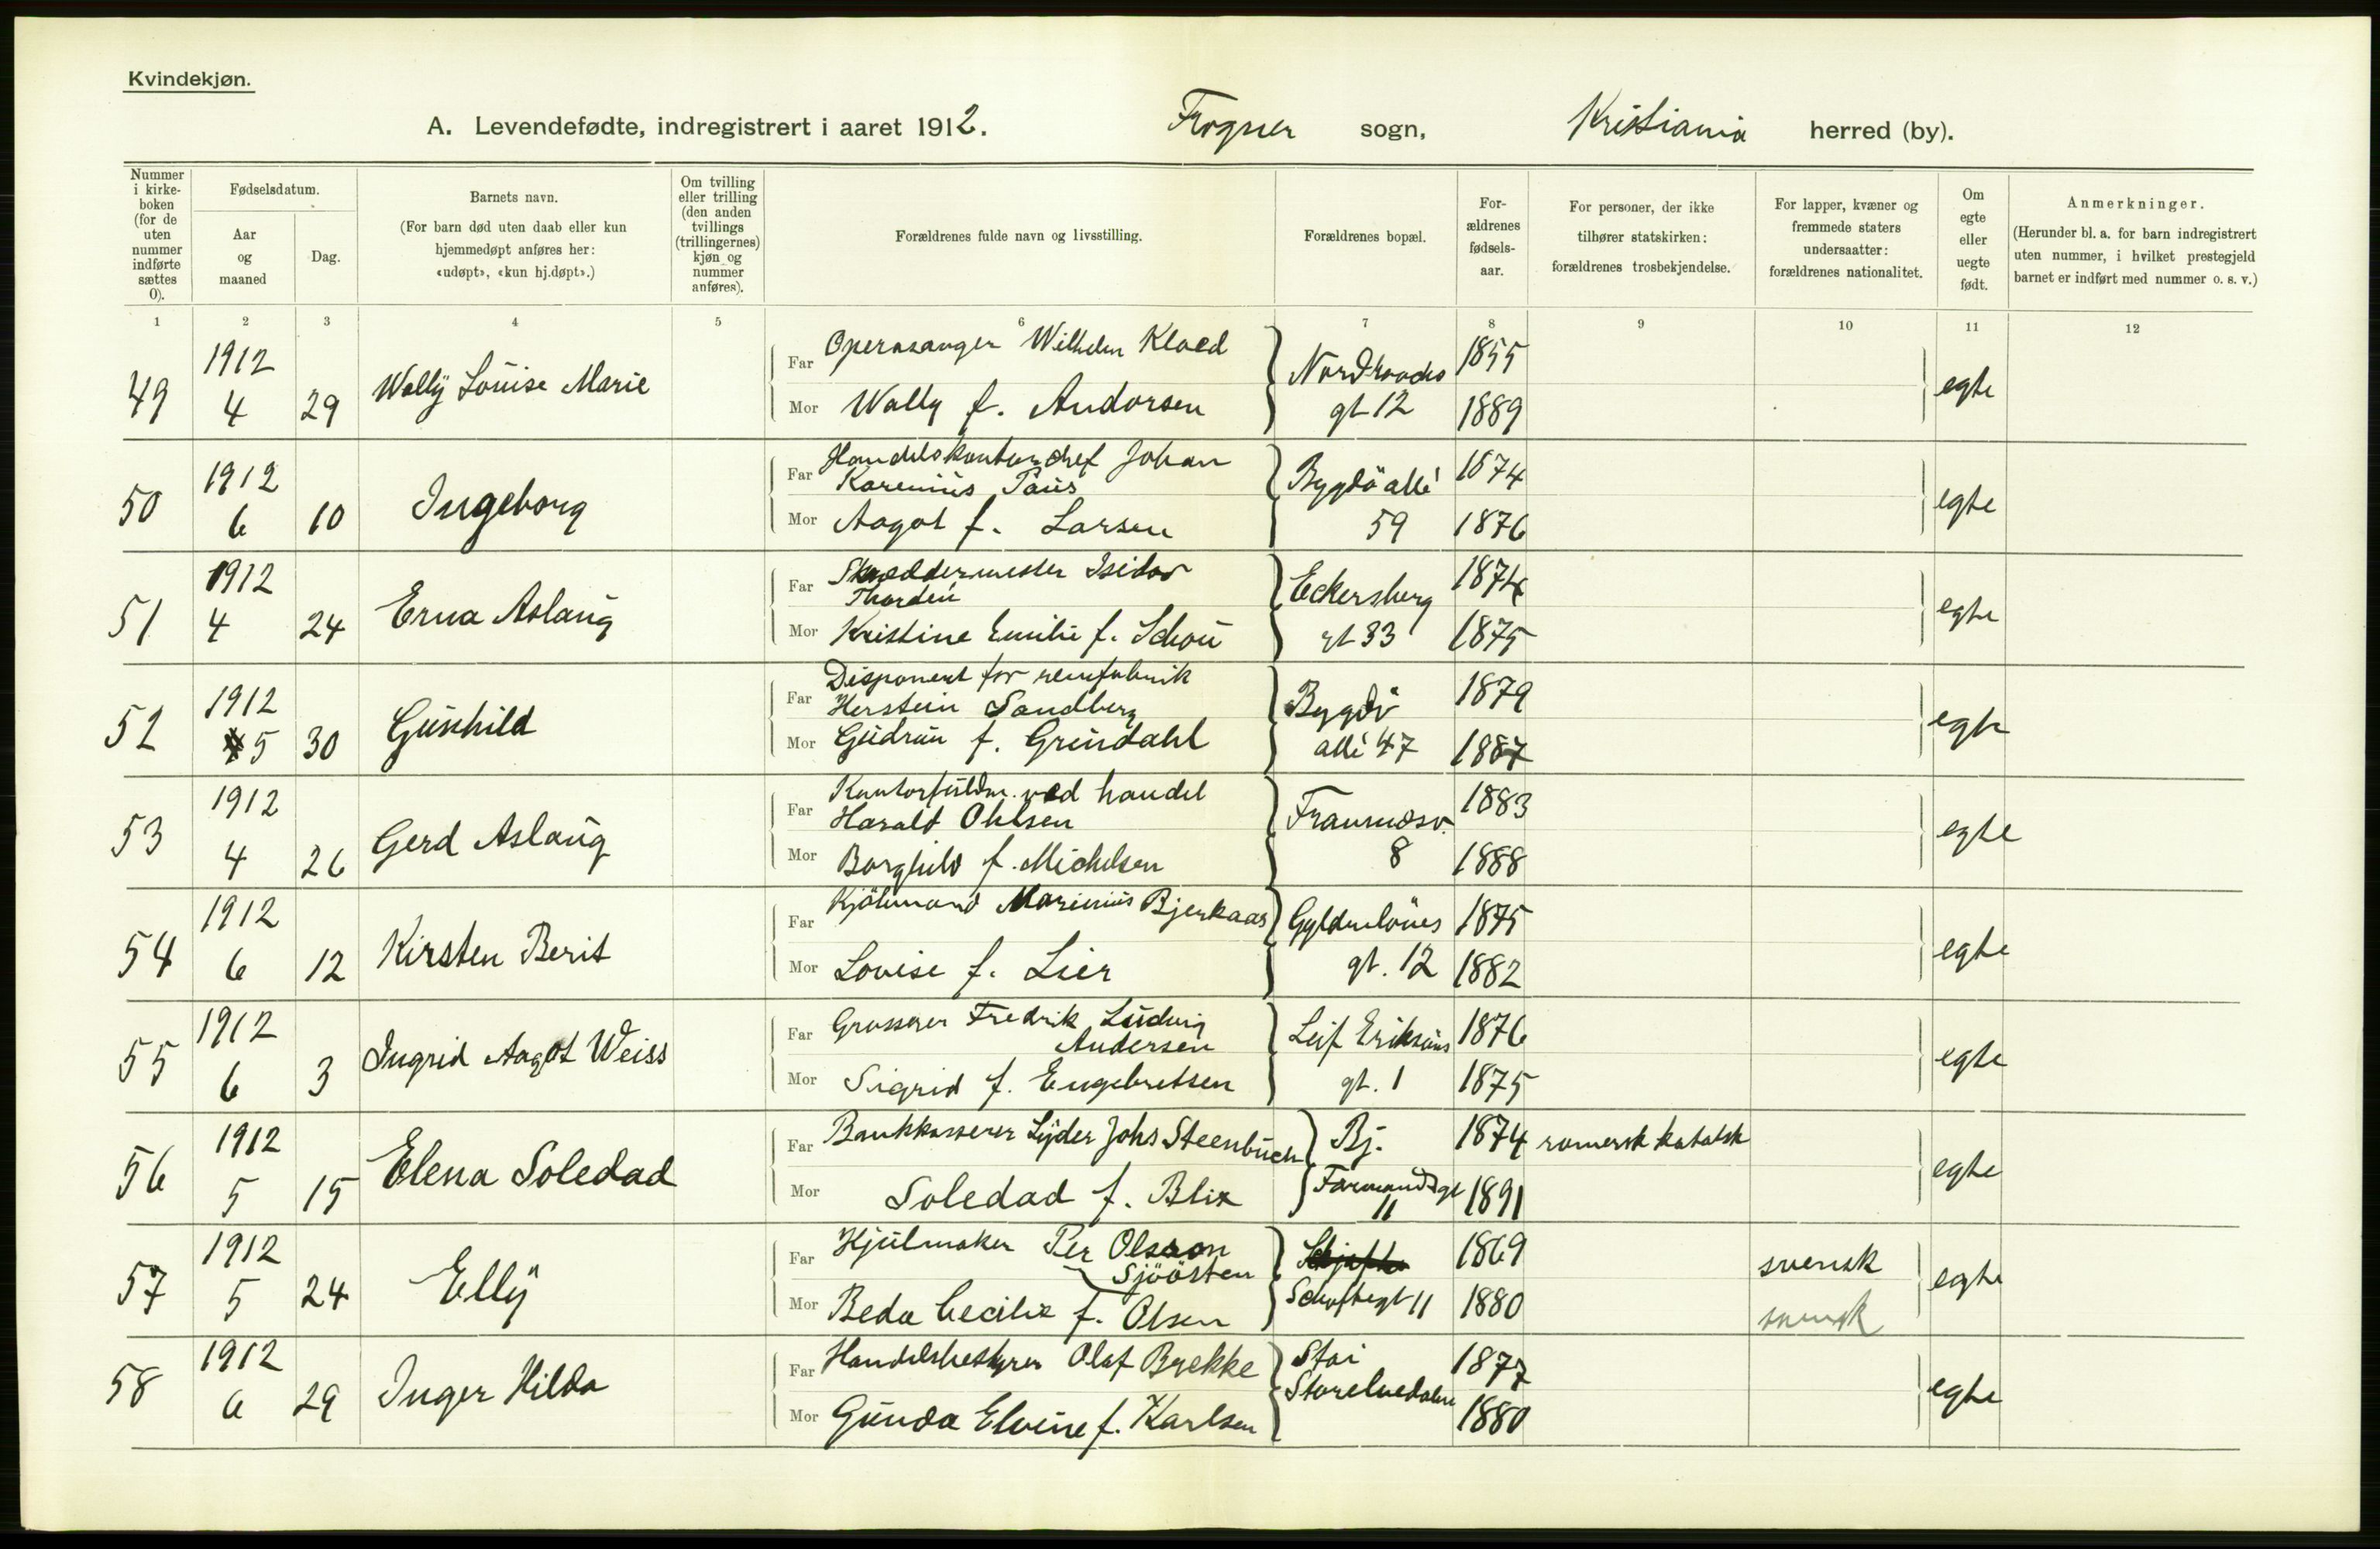 Kvindekjøn.
A. Levendefødte, indregistrert i aaret 1912. Frogner sogn, Kristiania herred (by).
Nummer i kirke-boken (for de uten nummer indførte sættes 0).
Fødselsdatum.
Aar og maaned
Dag.
Barnets navn.
(For barn død uten daab eller kun hjemmedøpt anføres her: «udøpt», «kun hj.døpt».)
Om tvilling eller trilling (den anden tvillings (trillingernes) kjøn og nummer anføres).
Forældrenes fulde navn og livsstilling.
Forældrenes bopæl.
For-ældrenes fødsels-aar.
For personer, der ikke tilhører statskirken: forældrenes trosbekjendelse.
For lapper, kvæner og fremmede staters undersaatter: forældrenes nationalitet.
Om egte eller uegte født.
Anmerkninger.
(Herunder bl. a. for barn indregistrert uten nummer, i hvilket prestegjeld barnet er indført med nummer o. s. v.)
1 2 3 4 5 6 7 8 9 10 11 12
49 1912 4 29 Wally Louise Marie
Far Operasanger Wilhelm Kloed
Mor Wally f. Andorsen
Nordraaks gt 12
1855
1889
egte
50 1912 6 10 Ingeborg
Far Handelskontorchef Johan
Karenius Paus
Mor Aagot f. Larsen
Bygdö allé
59
1874
1876
egte
51 1912 4 24 Erna Aslaug
Far Skræddermester Isidor
Thorden
Mor Kristine Emilie f. Schou
Eckersberg
gt 33
1874
1875
egte
52 1912 5 30 Gunhild
Far Disponent for remfabrik
Herstein Sandberg
Mor Gudrun f. Gründahl
Bygdö
allé 47
1879
1887
egte
53 1912 4 26 Gerd Aslaug
Far Kontorfuldm. ved handel
Harald Ohlsen
Mor Borghild f. Michelsen
Framnæsv.
8
1883
1888
egte
54 1912 6 12 Kirsten Berit
Far Kjölmand Marinius Bjerkaas
Mor Lovise f. Lier
Gyldenlöves
gt. 12
1875
1882
egte
55 1912 6 3 Ingrid Aagot Weiss
Far Grosserer Fredrik Ludvig
Andersen
Mor Sigrid f. Engebretsen
Leif Eriksöns
gt. 1
1876
1875
egte
56 1912 5 15 Elena Soledad
Far Bankkasserer Lyder Johs Steenbuch
Mor Soledad f. Blix
Bj.
Farmandsgt
11
1874
1891
romersk katolsk
egte
57 1912 5 24 Elly
Far Hjulmaker Per Olsson
Sjöösten
Mor Beda Cecilia f. Olsen
Schoftegt 11
1869
1880
svensk
svensk
egte
58 1912 6 29 Inger Hilda
Far Handelsbestyrer Olaf Brekke
Mor Gunda Elvine f. Karlsen
Stai
Storelvedalen
1877
1880
egte